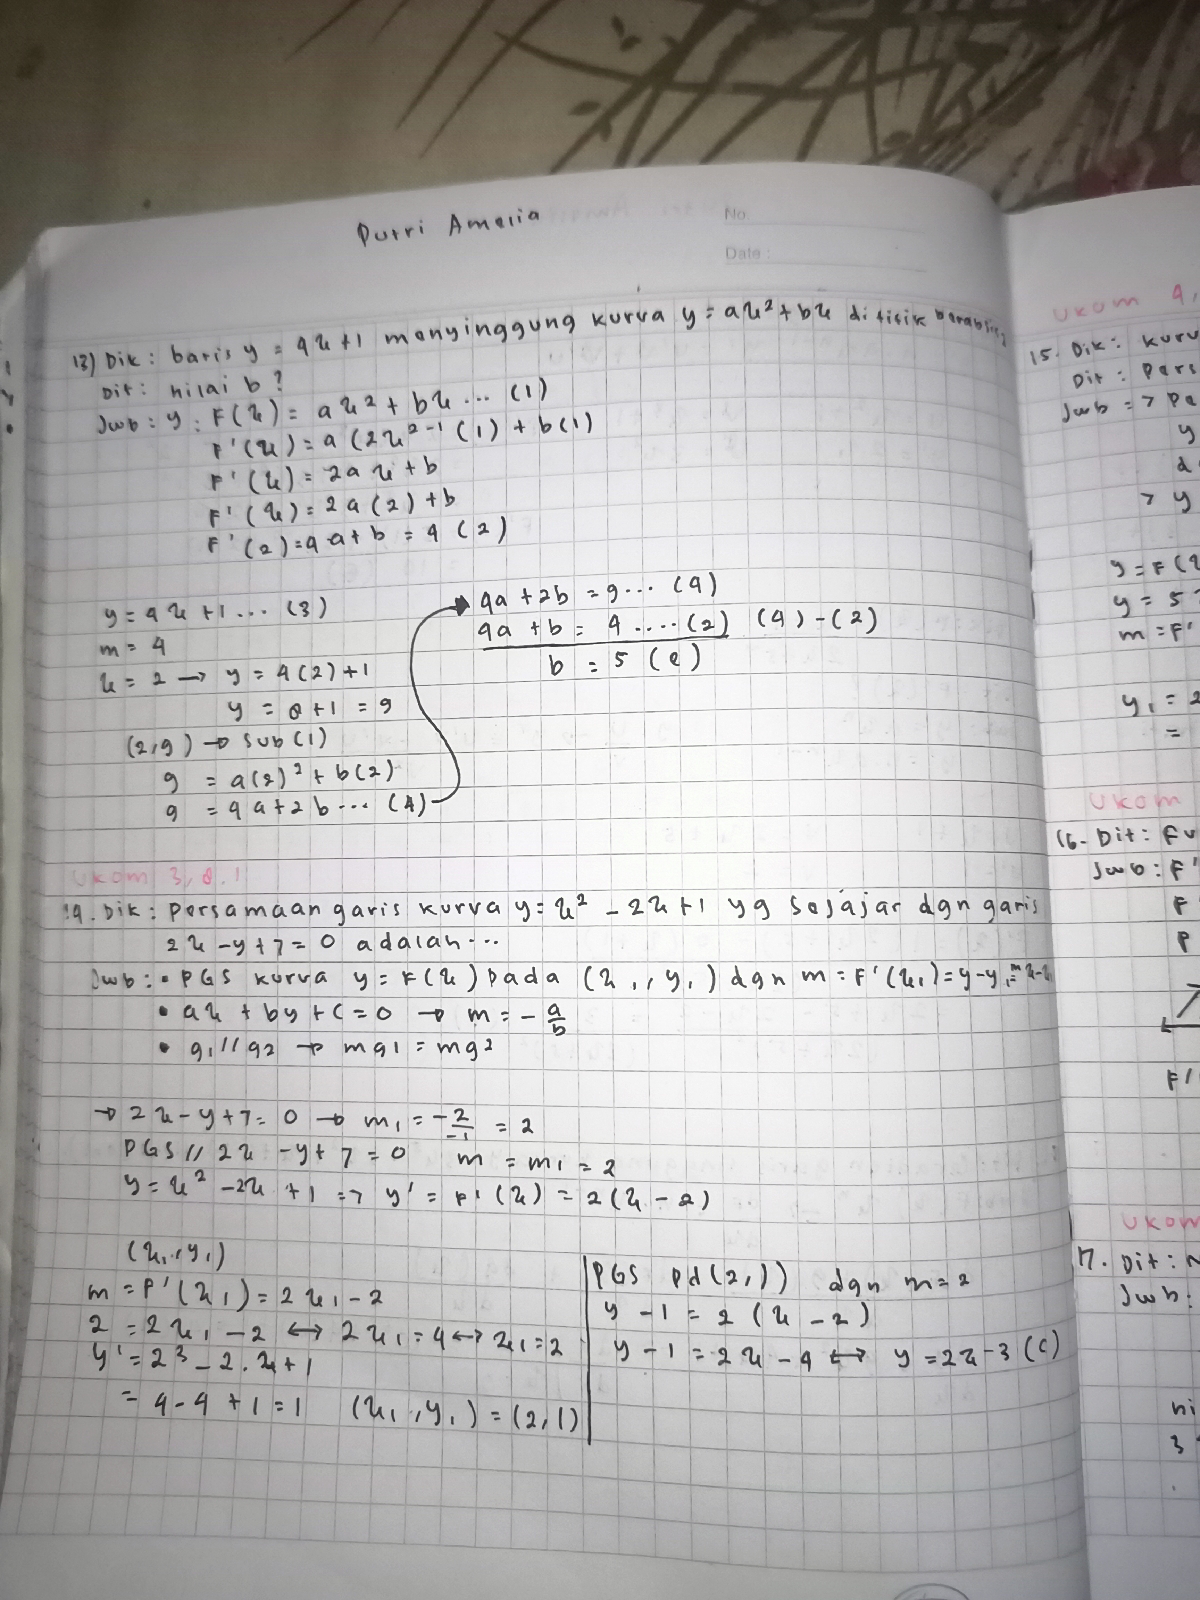 Putri Amalia
No.
Date :
13) Dik : baris y = 4x+1 menyinggung kurva y = ax² + bx di titik berabsis 2
Dit : nilai b ?
Jwb : y : F(x) = ax² + bx ... (1)
F'(x) = a(2x²⁻¹(1) + b(1)
F'(x) = 2ax + b
F'(x) = 2a(2) + b
F'(2) = 4a + b = 4 (2)
y = 4x + 1 ... (3)
m = 4
x = 2 → y = 4(2)+1
y = 8+1 = 9
(2,9) → sub (1)
9 = a(2)² + b(2)
9 = 4a+2b ... (4)
4a + 2b = 9 ... (4)
4a + b = 4 .... (2) (4) - (2)
b = 5 (e)
Ukom 3, 8.1
14. Dik : Persamaan garis kurva y = x² - 2x + 1 yg sejajar dgn garis
2x - y + 7 = 0 adalah ...
Jwb : • PGS kurva y = F(x) pada (x₁, y₁) dgn m = F'(x₁) = y - y₁ = m x - x₁
• ax + by + c = 0 → m = - a/b
• g₁ // g2 → mg1 = mg2
→ 2x - y + 7 = 0 → m₁ = - 2/-1 = 2
PGS // 2x - y + 7 = 0 m = m₁ = 2
y = x² - 2x + 1 => y' = F'(x) = 2(x - 2)
(x₁, y₁)
m = F'(x₁) = 2x₁ - 2
2 = 2x₁ - 2 ↔ 2x₁ = 4 ↔ x₁ = 2
y' = 2³ - 2.x + 1
= 4 - 4 + 1 = 1 (x₁, y₁) = (2, 1)
PGS pd (2,1) dgn m = 2
y - 1 = 2 (x - 2)
y - 1 = 2x - 4 ↔ y = 2x - 3 (c)
Ukom 4,
15. Dik :
Dit :
Jwb = >
y
> y
y = F(
y = 5
m = F'
y₁ = 2
=
Ukom
16. Dit :
Jwb : F'
F
F'
Ukom
17. Dit :
Jwb :
3